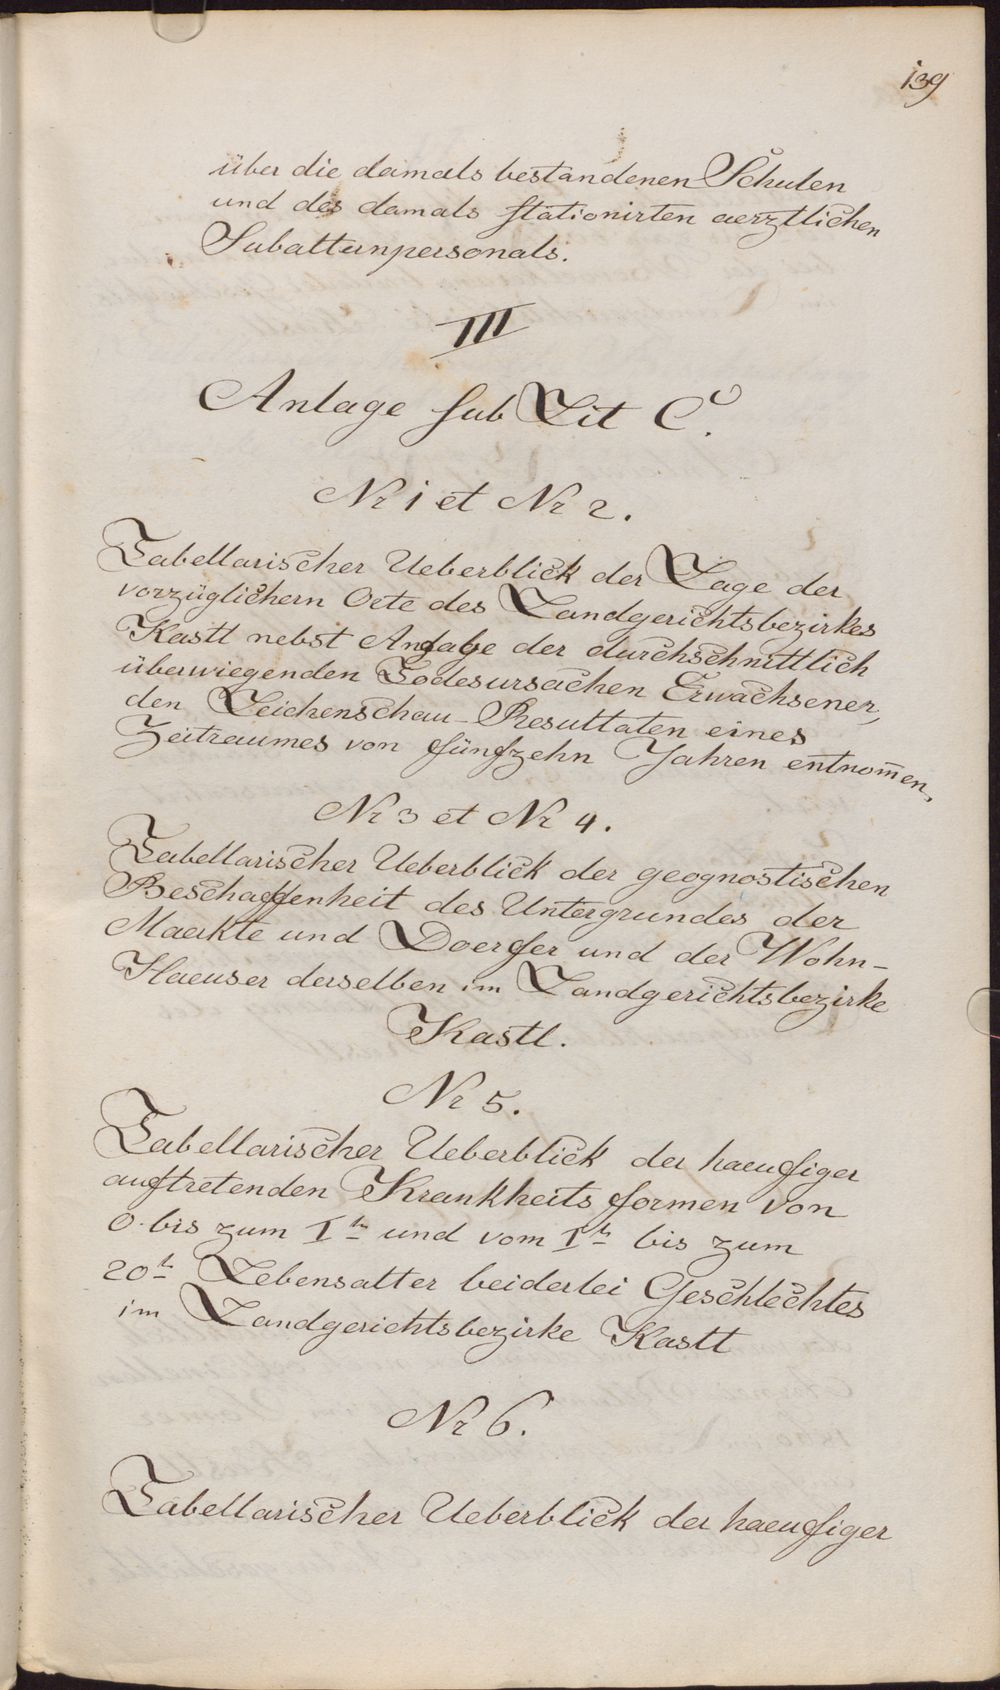 139
über die damals bestandenen Schulen
und des damals stationirten aerztlichen
Subalternpersonals.
III
Anlage sub Lit C.
Nr 1 et Nr 2.
Tabellarischer Ueberblick der Lage der
vorzüglichern Orte des Landgerichtsbezirkes
Kastl nebst Angabe der durchschnittlich
überwiegenden Todesursachen Erwachsener,
den Leichenschau-Resultaten eines
Zeitraumes von fünfzehn Jahren entnom̄en.
Nr 3 et Nr 4.
Tabellarischer Ueberblick der geognostischen
Beschaffenheit des Untergrundes der
Maerkte und Doerfer und der Wohn-
Haeuser derselben im Landgerichtsbezirke
Kastl.
Nr 5.
Tabellarischer Ueberblick der haeufiger
auftretenden Krankheitsformen von
0 bis zum 1tn und vom 1tn bis zum
20tn Lebensalter beiderlei Geschlechtes
im Landgerichtsbezirke Kastl
Nr 6.
Tabellarischer Ueberblick der haeufiger